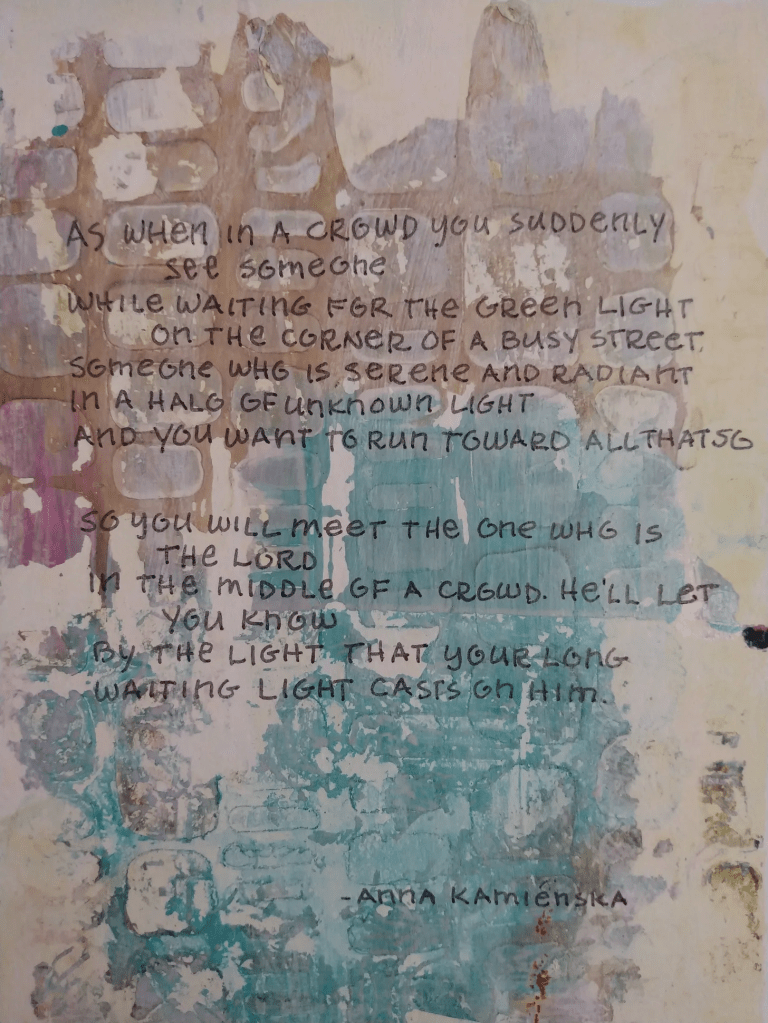 AS WHEN IN A CROWD YOU SUDDENLY
SEE SOMEONE
WHILE WAITING FOR THE GREEN LIGHT
ON THE CORNER OF A BUSY STREET.
SOMEONE WHO IS SERENE AND RADIANT
IN A HALO OF UNKNOWN LIGHT
AND YOU WANT TO RUN TOWARD ALL THAT SO
SO YOU WILL MEET THE ONE WHO IS
THE LORD
IN THE MIDDLE OF A CROWD. HE'LL LET
YOU KNOW
BY THE LIGHT THAT YOUR LONG
WAITING LIGHT CASTS ON HIM.
-ANNA KAMIEŃSKA